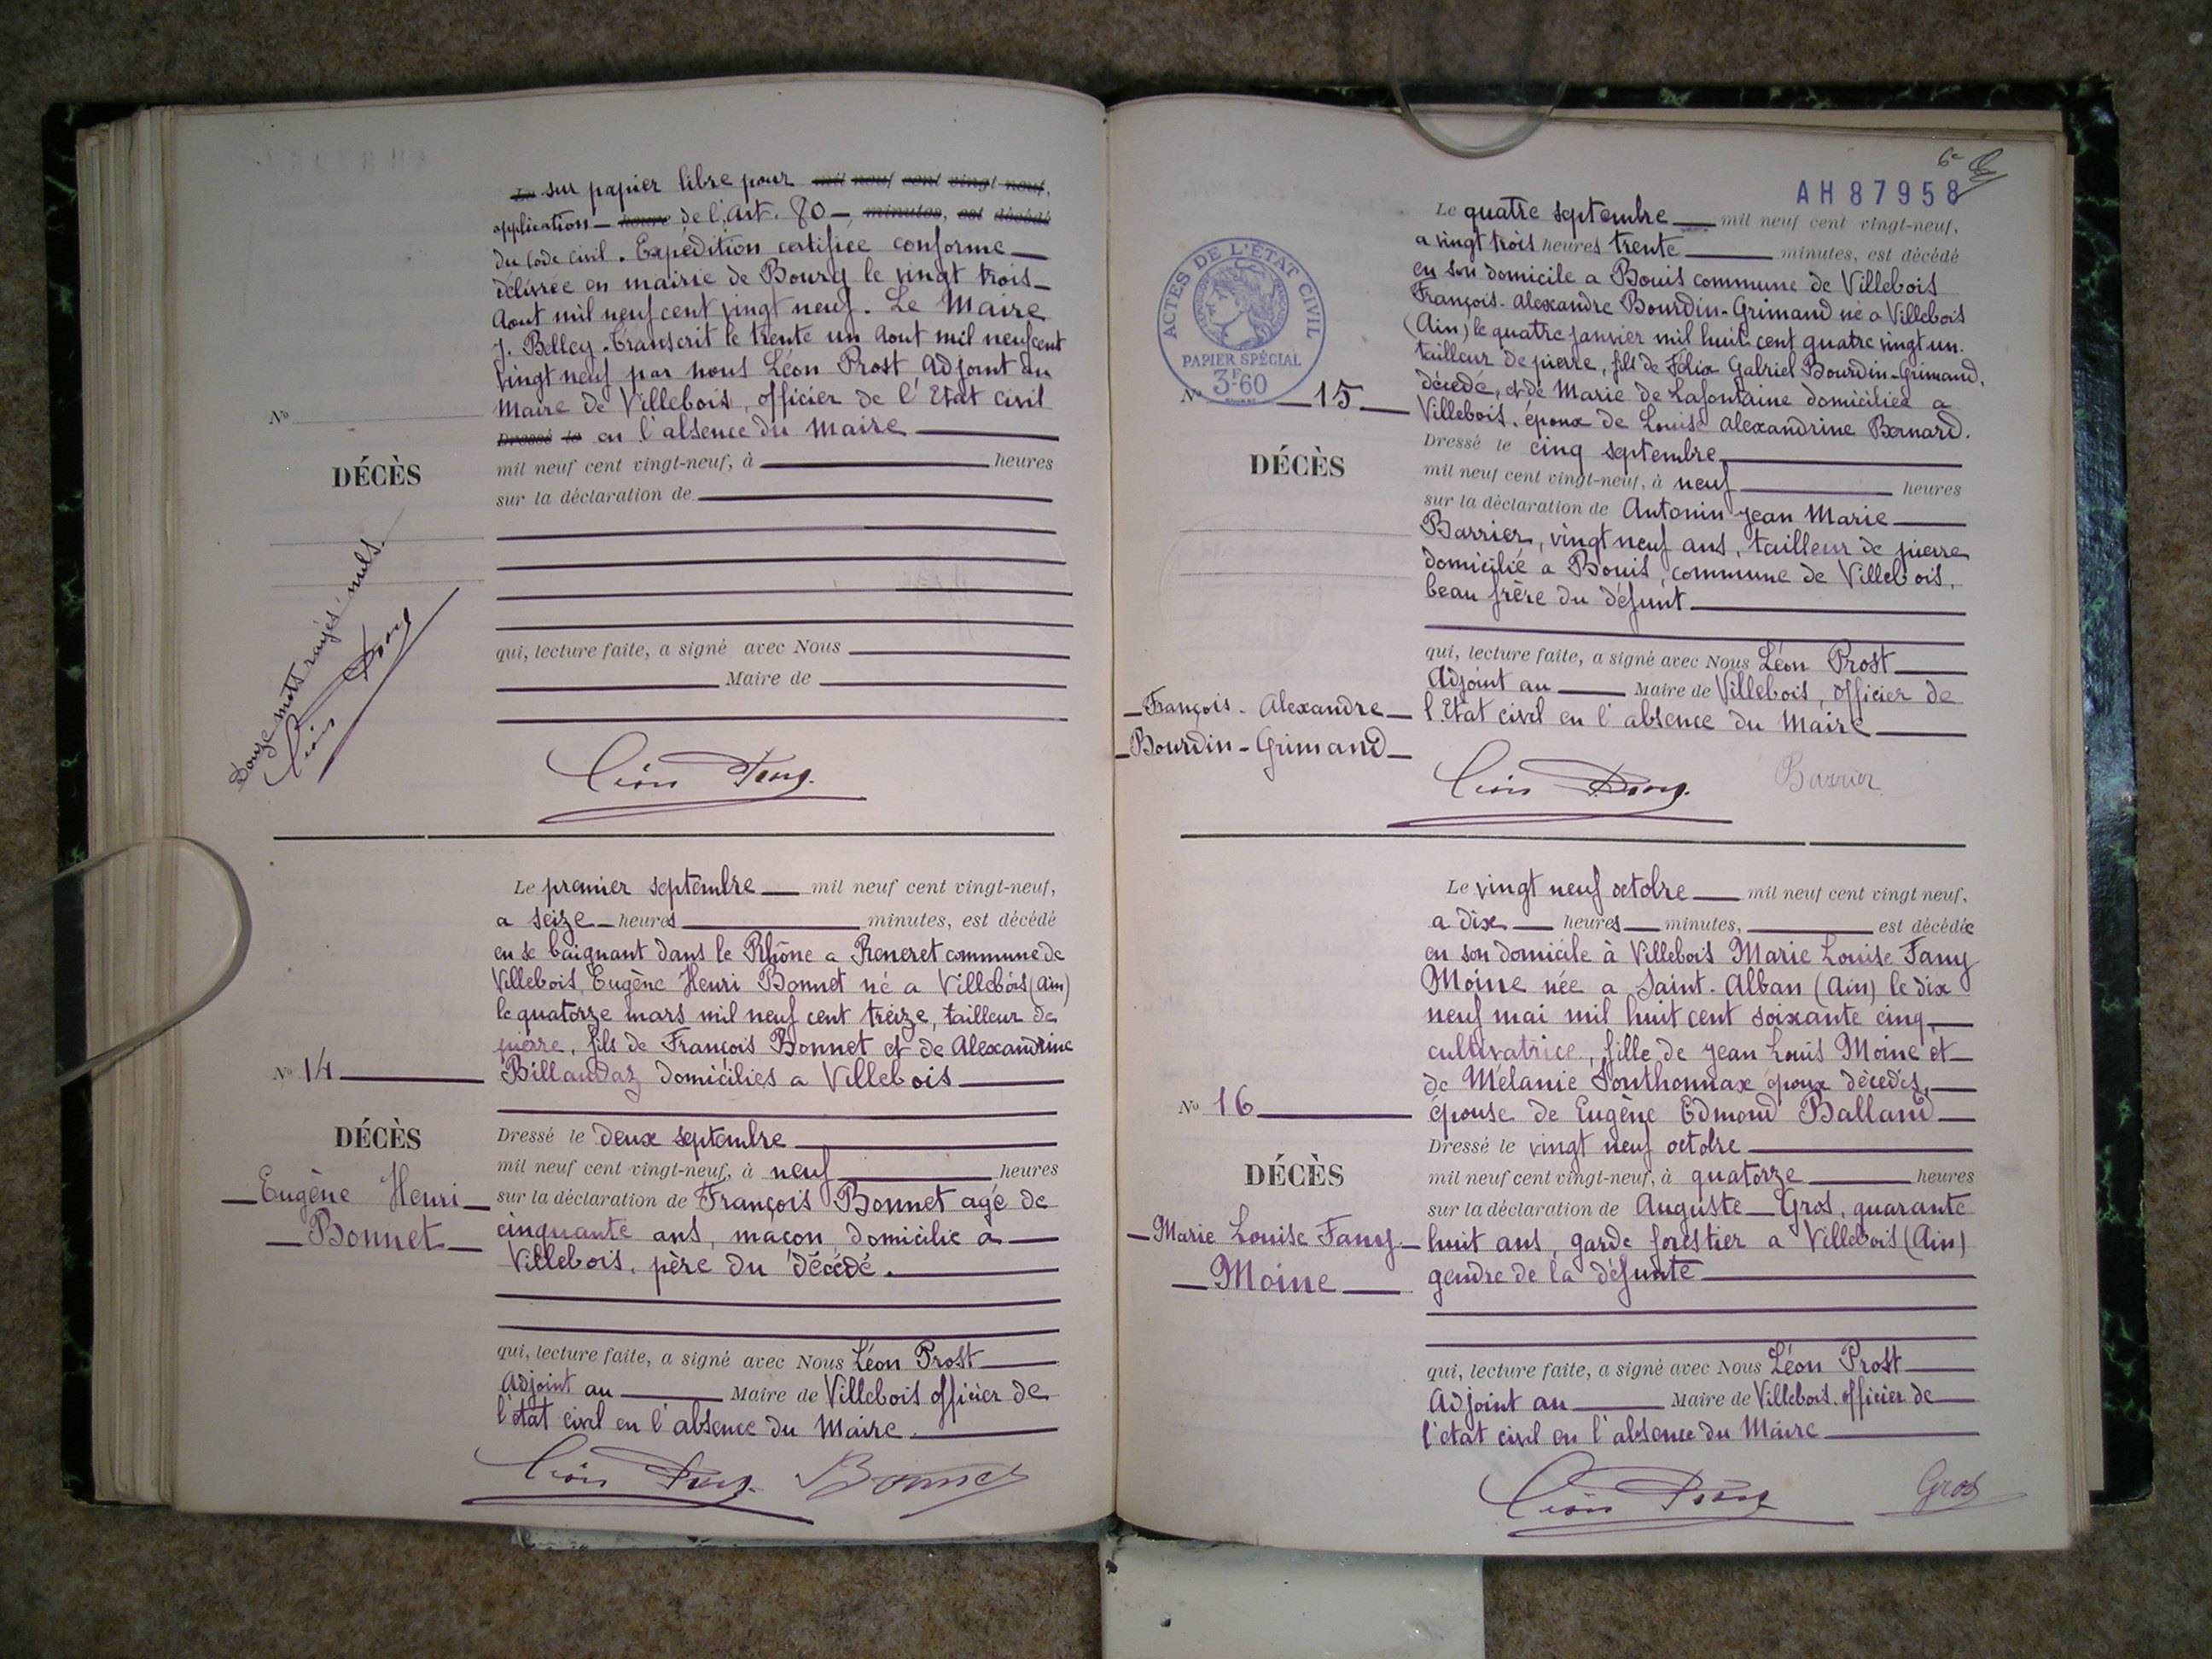 Le sur papier libre pour mil neuf cent vingt-neuf,
application heure de l'Art. 80 minutes, est décédé
du Code Civil. Expédition certifiée conforme
délivrée en mairie de Bourg le vingt trois
Aout mil neuf cent vingt neuf. Le Maire
J. Belley. Transcrit le trente un Aout mil neuf cent
vingt neuf par nous Léon Prost Adjoint au
Maire de Villebois, officier de l'Etat civil
Dressé le en l'absence du Maire
mil neuf cent vingt-neuf, à heures
sur la déclaration de
qui, lecture faite, a signé avec Nous
Maire de
Léon Prost
No
DÉCÈS
Douze mots rayés nuls.
Léon Prost
Le premier septembre mil neuf cent vingt-neuf,
a seize heures minutes, est décédé
en se baignant dans le Rhône a Reneret commune de
Villebois, Eugène Henri Bonnet né a Villebois (Ain)
le quatorze mars mil neuf cent treize, tailleur de
pierre, fils de François Bonnet et de Alexandrine
Billaudaz domiciliés a Villebois
Dressé le deux septembre
mil neuf cent vingt-neuf, à neuf heures
sur la déclaration de François Bonnet agé de
cinquante ans, maçon, domicilié a
Villebois, père du décédé.
qui, lecture faite, a signé avec Nous Léon Prost
Adjoint au Maire de Villebois officier de
l'état civil en l'absence du Maire.
Léon Prost Bonnet
No 14
DÉCÈS
Eugène Henri
Bonnet
6e
AH87958
Le quatre septembre mil neuf cent vingt-neuf,
a vingt trois heures trente minutes, est décédé
en son domicile a Bouis commune de Villebois
François-Alexandre Bourdin-Grimaud né a Villebois
(Ain) le quatre janvier mil huit cent quatre vingt un.
tailleur de pierre, fils de Félix Gabriel Bourdin-Grimaud,
décédé, et de Marie de Lafontaine domiciliée a
Villebois. époux de Louise Alexandrine Bernard.
Dressé le cinq septembre
mil neuf cent vingt-neuf, à neuf heures
sur la déclaration de Antonin Jean Marie
Barrier, vingt neuf ans, tailleur de pierre
domicilié a Bouis, commune de Villebois,
beau frère du défunt
qui, lecture faite, a signé avec Nous Léon Prost
Adjoint au Maire de Villebois, officier de
l'Etat civil en l'absence du Maire
Léon Prost Barrier
ACTES DE L'ÉTAT CIVIL
PAPIER SPÉCIAL
3F60
No 15
DÉCÈS
François-Alexandre
Bourdin-Grimaud
Le vingt neuf octobre mil neuf cent vingt neuf,
a dix heures minutes, est décédée
en son domicile à Villebois Marie Louise Fany
Moine née a Saint-Alban (Ain) le dix
neuf mai mil huit cent soixante cinq,
cultivatrice, fille de Jean Louis Moine et
de Mélanie Ponthonnax époux décédés,
épouse de Eugène Edmond Balland
Dressé le vingt neuf octobre
mil neuf cent vingt-neuf, à quatorze heures
sur la déclaration de Auguste Gros, quarante
huit ans, garde forestier a Villebois (Ain)
gendre de la défunte
qui, lecture faite, a signé avec Nous Léon Prost
Adjoint au Maire de Villebois, officier de
l'état civil en l'absence du Maire
Léon Prost Gros
No 16
DÉCÈS
Marie Louise Fany
Moine